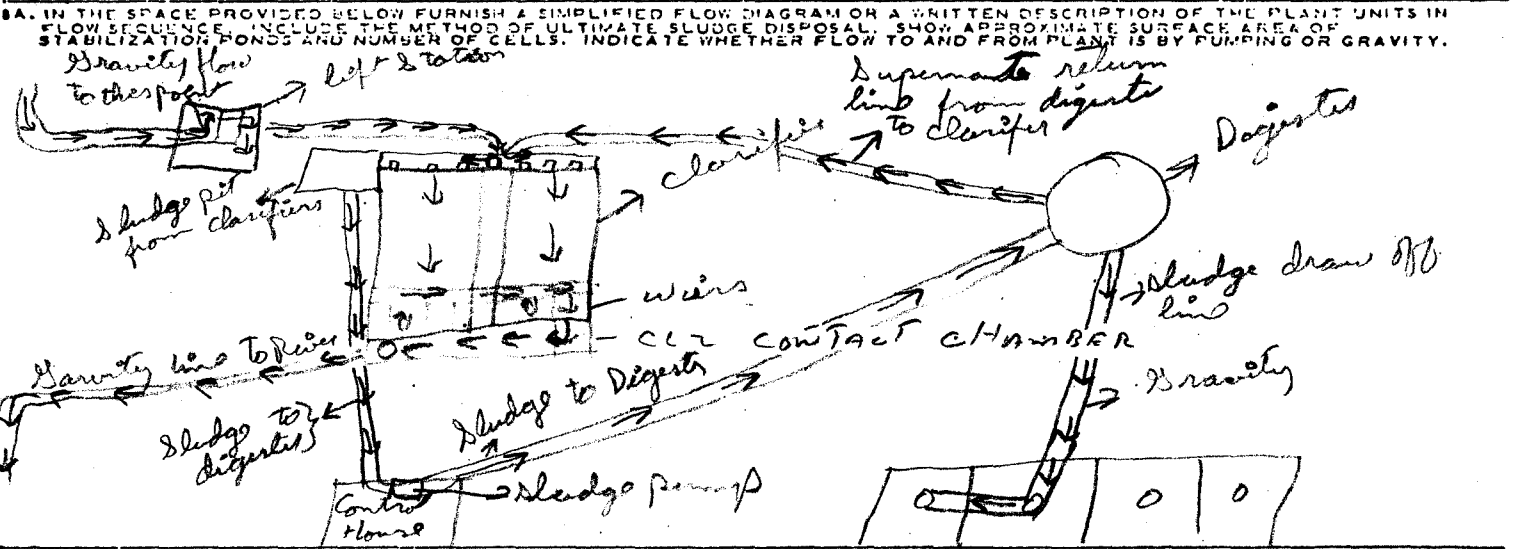 8A. IN THE SPACE PROVIDED BELOW FURNISH A SIMPLIFIED FLOW DIAGRAM OR A WRITTEN DESCRIPTION OF THE PLANT UNITS IN
FLOW SEQUENCE. INCLUDE THE METHOD OF ULTIMATE SLUDGE DISPOSAL. SHOW APPROXIMATE SURFACE AREA OF
STABILIZATION PONDS AND NUMBER OF CELLS. INDICATE WHETHER FLOW TO AND FROM PLANT IS BY PUMPING OR GRAVITY.
Gravity flow
to this point
lift station
Supernante return
line from digests
to clarifer
Digestes
clarifies
Sludge pit
from clarifiers
Sludge draw off
line
wiers
CL2 CONTACT CHAMBER
Garvity line to River
Gravity
Sludge to Digests
Sludge to
digestes
Sludge pump
Control
House